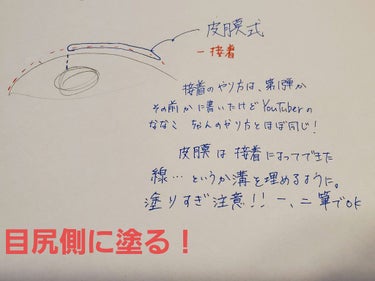 皮膜式
- 接着
接着のやり方は、第1弾か
その前かに書いたけどYouTuberの
ななこ ちゃんのやり方とほぼ同じ!
皮膜は接着によってできた
線…というか溝を埋めるように。
塗りすぎ注意!! 一、二筆でOK
目尻側に塗る!